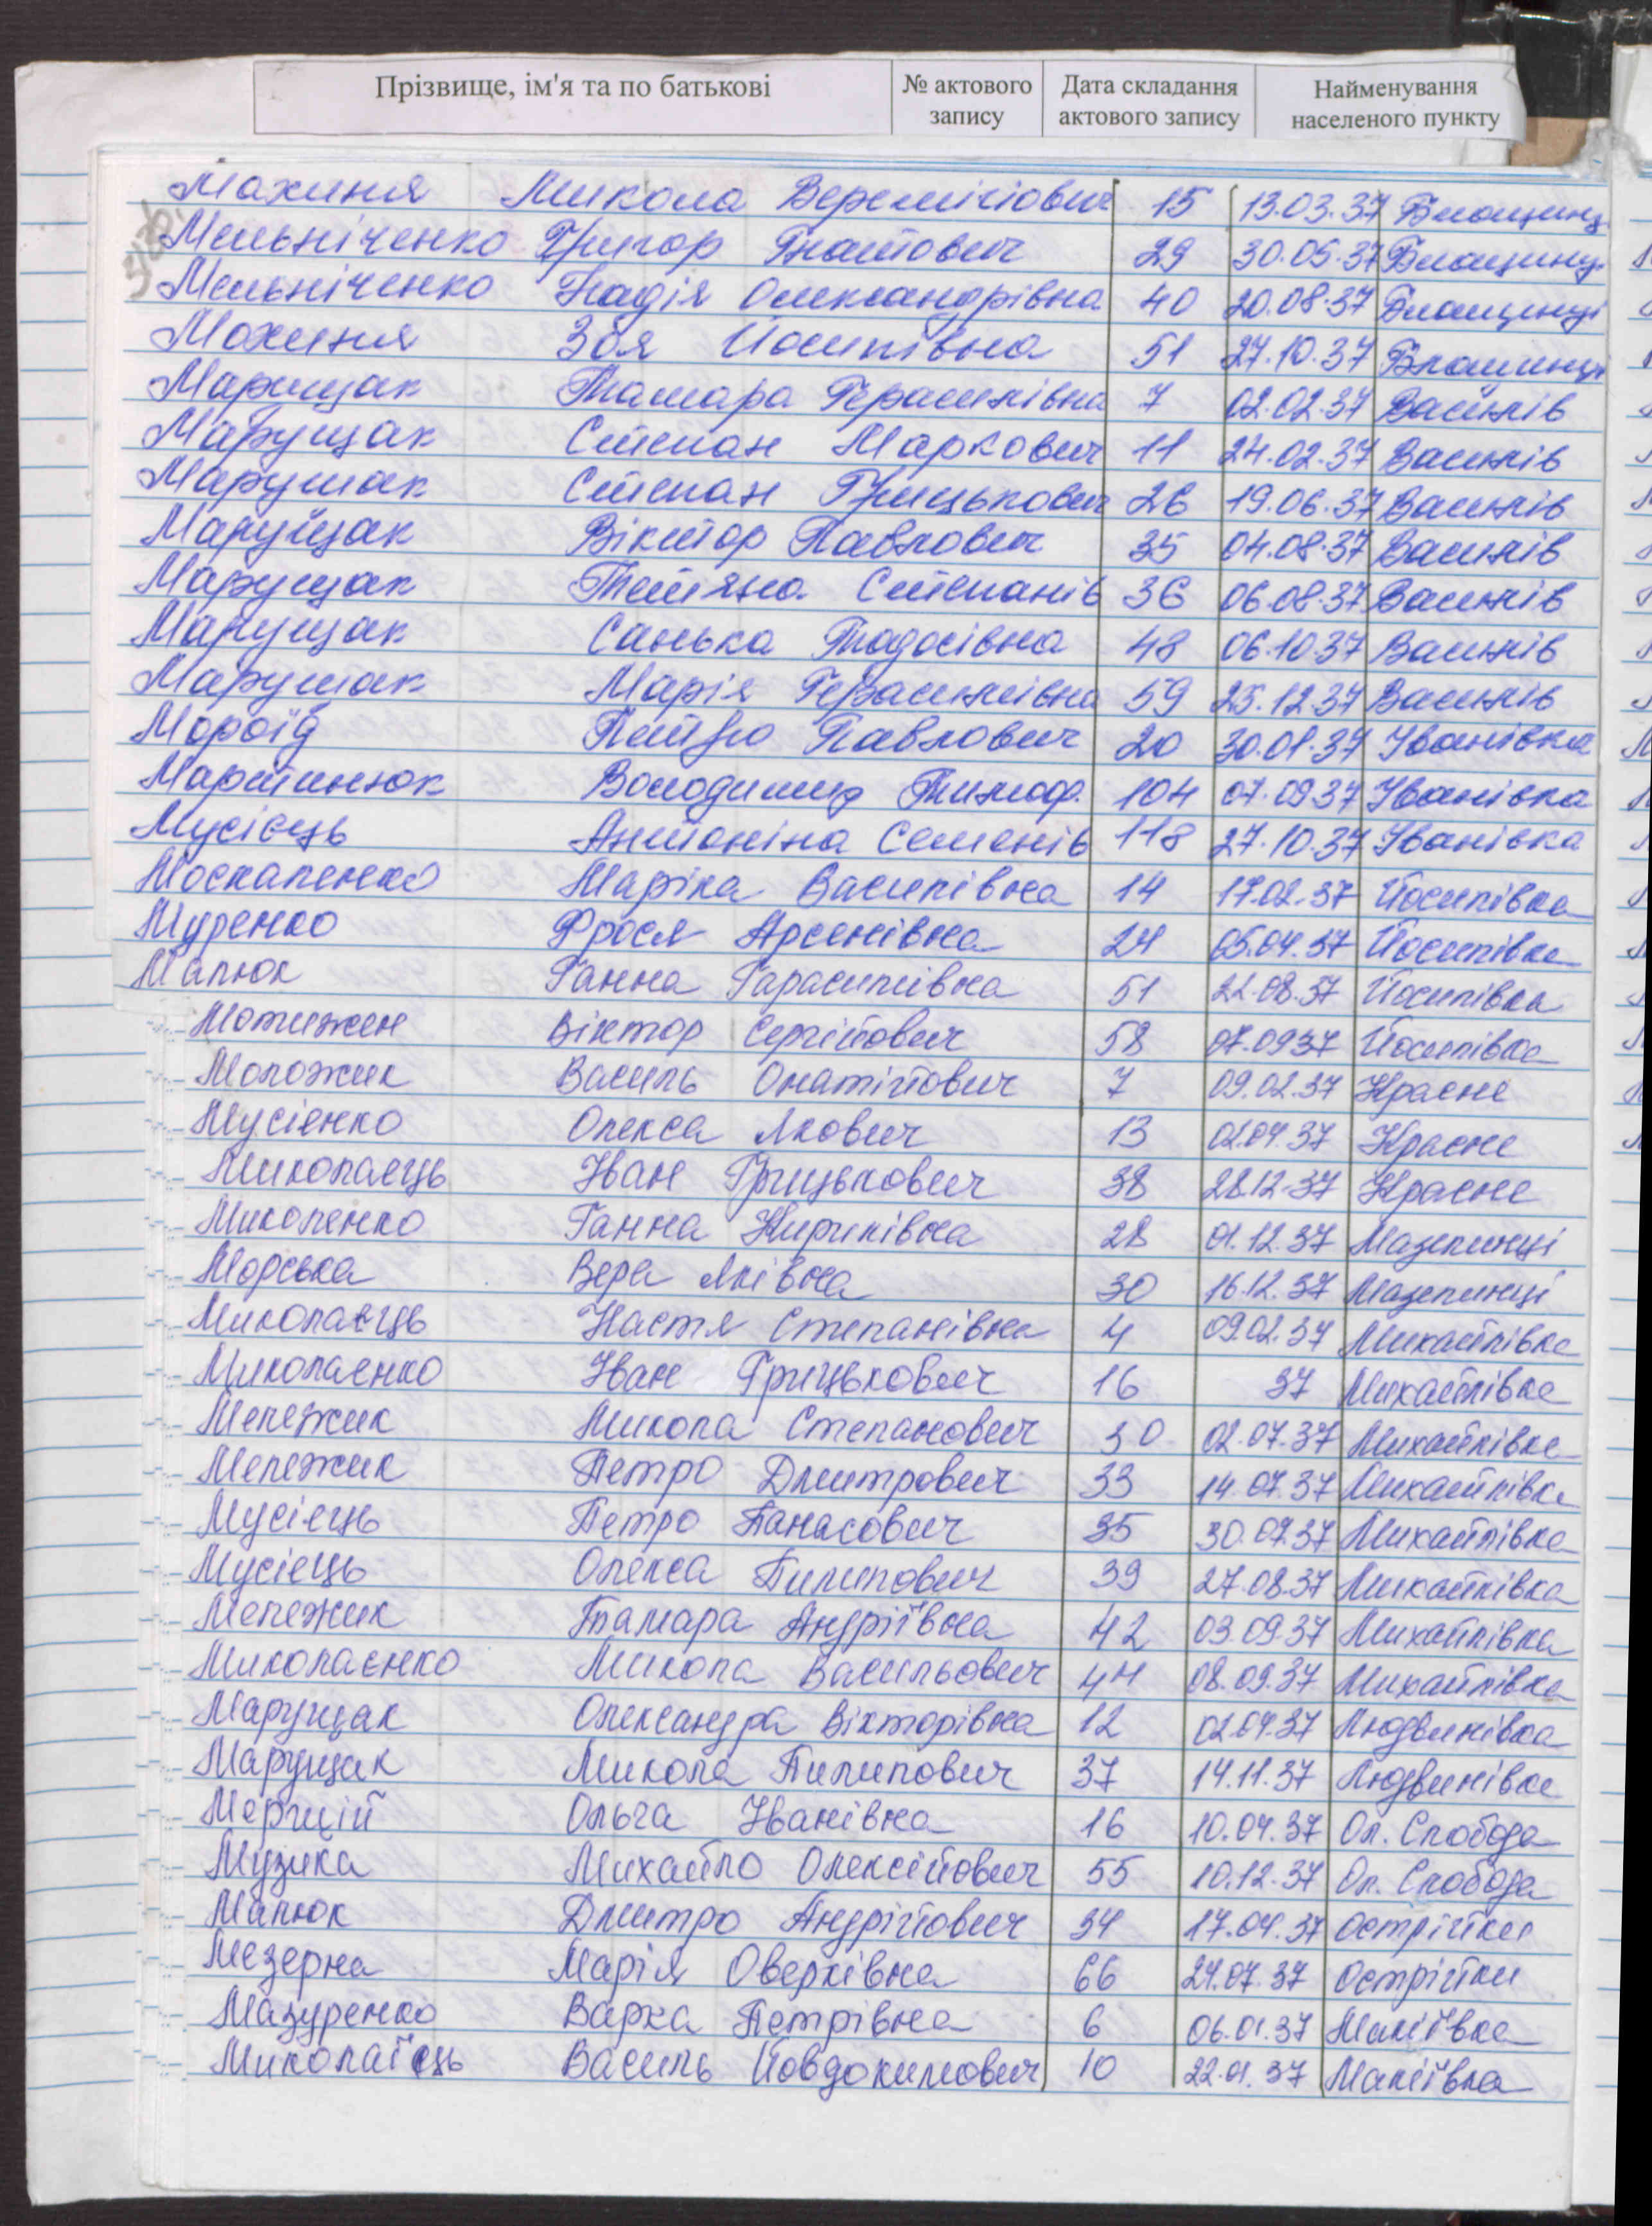 Прізвище, ім'я та по батькові № актового запису Дата складання актового запису Найменування населеного пункту
Махиня Микола Веремійович 15 13.03.37 Блощинц
Мельніченко Григор Гнатович 29 30.05.37 Блощинці
Мельніченко Надія Олександрівна 40 20.08.37 Блощинці
Махиня Зоя Йосипівна 51 27.10.37 Блощинці
Марущак Тамара Герасимівна 7 02.02.37 Василів
Марущак Степан Маркович 11 24.02.37 Василів
Марущак Степан Грицькович 26 19.06.37 Василів
Марущак Віктор Павлович 35 04.08.37 Василів
Марущак Тетяна Степанів 36 06.08.37 Василів
Марущак Санька Тодосівна 48 06.10.37 Василів
Марущак Марія Герасимівна 59 25.12.37 Василів
Мороїд Петро Павлович 20 30.01.37 Іванівка
Мартинюк Володимир Тимоф. 104 07.09.37 Іванівка
Мусієць Антоніна Семенів 118 27.10.37 Іванівка
Москаленко Маріка Василівна 14 17.02.37 Йосипівка
Муренко Фрося Арсенівна 24 05.04.37 Йосипівка
Малюк Ганна Гарасимівна 51 22.08.37 Йосипівка
Мотижен Віктор Сергійович 58 07.09.37 Йосипівка
Моложик Василь Онатійович 7 09.02.37 Красне
Мусієнко Олекса Якович 13 02.04.37 Красне
Миколаєць Іван Грицькович 38 28.12.37 Красне
Миколенко Ганна Кирилівна 28 01.12.37 Мазепинці
Морська Вера Яківна 30 16.12.37 Мазепинці
Миколаєць Настя Степанівна 4 09.02.37 Михайлівка
Миколаєнко Іван Грицькович 16 37 Михайлівка
Мележик Микола Степанович 30 02.07.37 Михайлівка
Мележик Петро Дмитрович 33 14.07.37 Михайлівка
Мусієць Петро Панасович 35 30.07.37 Михайлівка
Мусієць Олекса Пилипович 39 27.08.37 Михайлівка
Мележик Тамара Андріївна 42 03.09.37 Михайлівка
Миколаєнко Микола Васильович 44 08.09.37 Михайлівка
Марущак Олександра Вікторівна 12 02.04.37 Людвинівка
Марущак Микола Пилипович 37 14.11.37 Людвинівка
Мерцій Ольга Іванівна 16 10.04.37 Ол. Слобода
Музика Михайло Олексійович 55 10.12.37 Ол. Слобода
Малюк Дмитро Андрійович 34 17.04.37 Острійки
Мезерна Марія Оверківна 66 24.07.37 Острійки
Мазуренко Варка Петрівна 6 06.01.37 Макіївка
Миколаїць Василь Йовдокимович 10 22.01.37 Макіївка